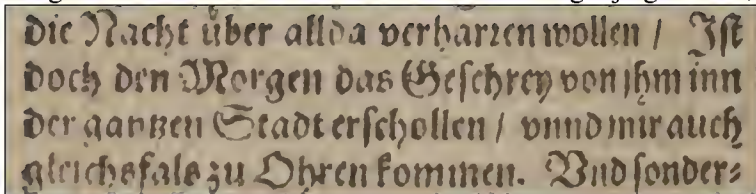 die Nacht über allda verharren wollen / Ist
doch den Morgen das Geschrey von jhm inn
der gantzen Stadt erschollen / vnnd mir auch
gleichsfals zu Ohren kommen. Vnd sonder⸗